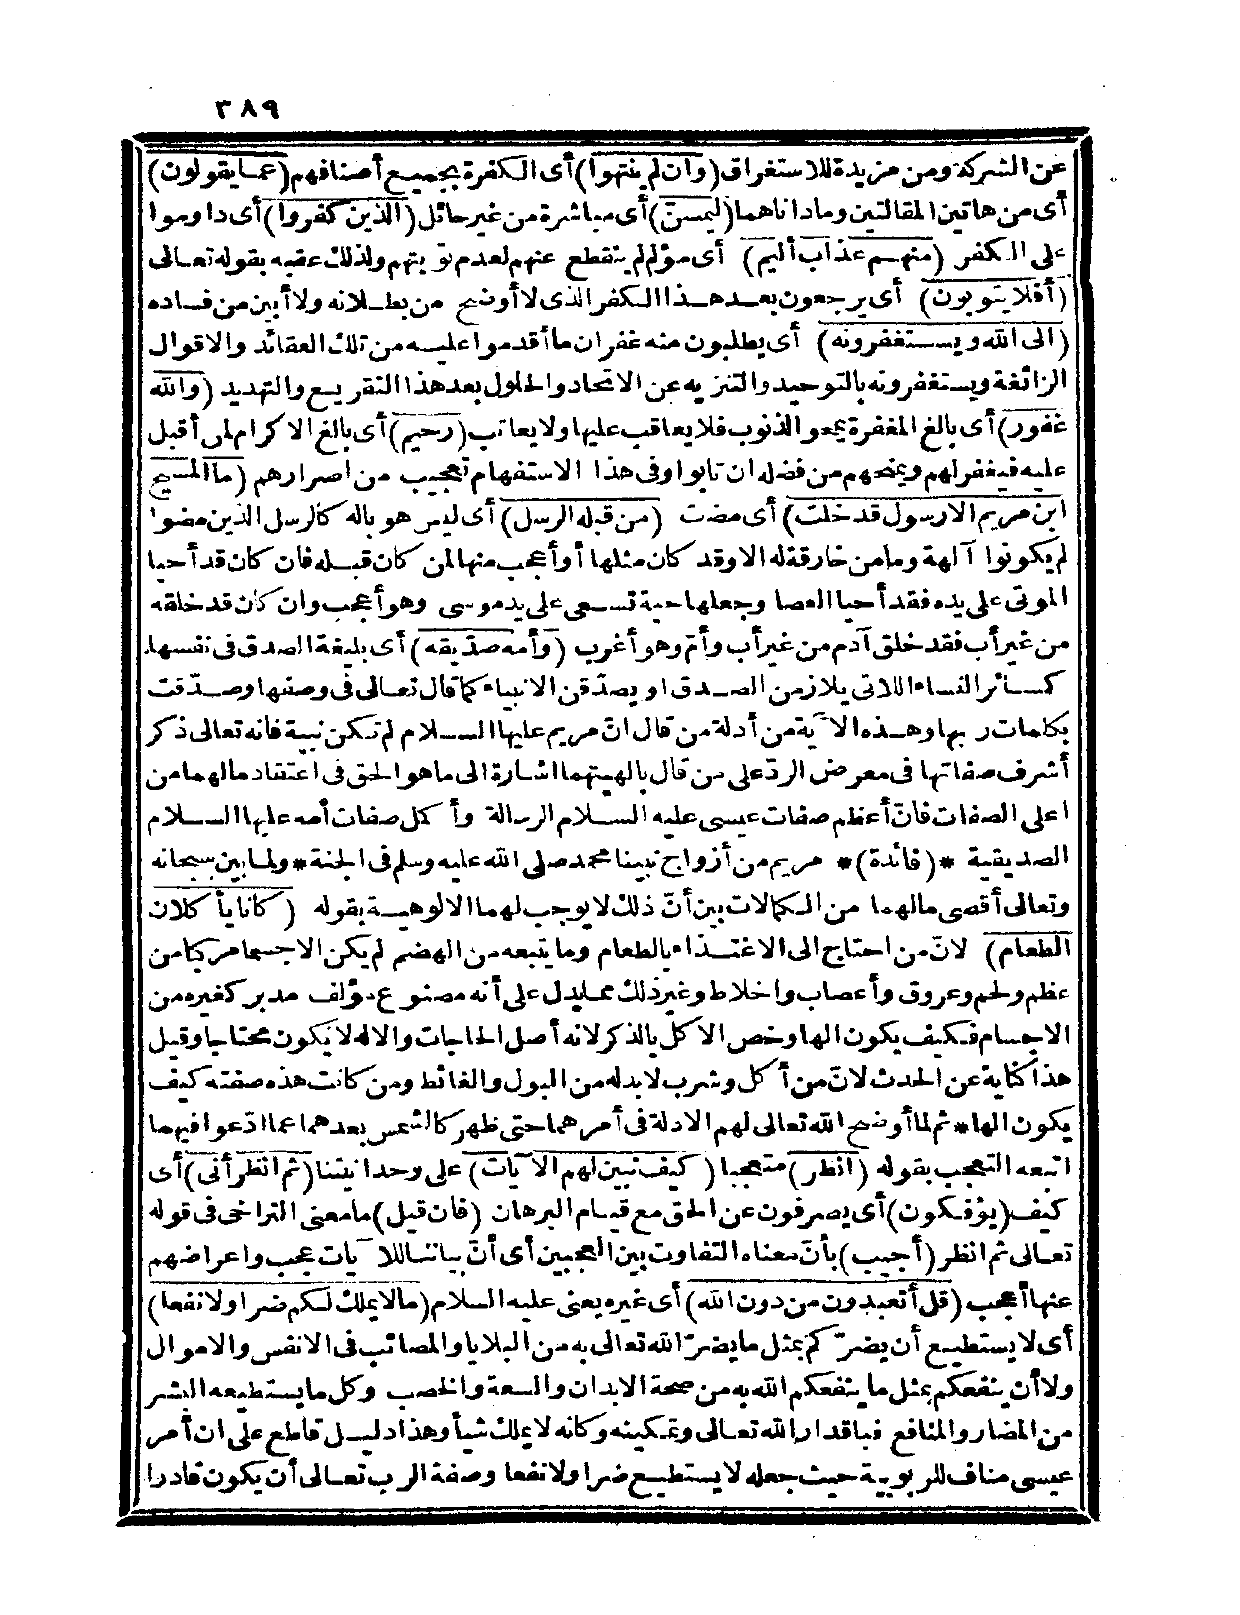 ٣٨٩
عن الشركة ومن مزيدة للاستغراق (وان لم ينتهوا) أى الكفرة بجميع أصنافهم (عما يقولون)
أى من هاتين المقالتين وما داناهما (ليمسنّ) أى مباشرة من غير حائل (الذين كفروا) أى داوموا
على الكفر (منهم عذاب أليم) أى مؤلم لم ينقطع عنهم لعدم توبتهم ولذلك عقبه بقوله تعالى
(أفلا يتوبون) أى يرجعون بعد هذا الكفر الذى لا أوضح من بطلانه ولا أبين من فساده
(الى الله ويستغفرونه) أى يطلبون منه غفران ما أقدموا عليه من تلك العقائد والاقوال
الزائغة ويستغفرونه بالتوحيد والتنزيه عن الاتحاد والحلول بعد هذا التقريع والتهديد (والله
غفور) أى بالغ المغفرة يمحو الذنوب فلا يعاقب عليها ولا يعاتب (رحيم) أى بالغ الاكرام لمن أقبل
عليه فيغفر لهم ويمنحهم من فضله ان تابوا وفى هذا الاستفهام تعجيب من اصرارهم (ما المسيح
ابن مريم الا رسول قد خلت) أى مضت (من قبله الرسل) أى ليس هو باله كالرسل الذين مضوا
لم يكونوا آلهة وما من خارقة له الا وقد كان مثلها أو أعجب منها لمن كان قبله فان كان قد أحيا
الموتى على يده فقد أحيا العصا وجعلها حية تسعى على يد موسى وهو أعجب وان كان قد خلقه
من غير أب فقد خلق آدم من غير أب وأمّ وهو أغرب (وأمه صدّيقه) أى بليغة الصدق فى نفسها
كسائر النساء اللاتى يلازمن الصدق او يصدّقن الانبياء كما قال تعالى فى وصفها وصدّقت
بكلمات ربها وهذه الآية من أدلة من قال انّ مريم عليها السلام لم تكن نبية فانه تعالى ذكر
أشرف صفاتها فى معرض الردّ على من قال بالهيتهما اشارة الى ما هو الحق فى اعتقاد ما لهما من
اعلى الصفات فانّ أعظم صفات عيسى عليه السلام الرسالة وأكمل صفات أمه عليها السلام
الصديقية *(فائدة)* مريم من أزواج نبينا محمد صلى الله عليه وسلم فى الجنة * ولما بين سبحانه
وتعالى أقصى ما لهما من الكمالات بين أنّ ذلك لا يوجب لهما الالوهية بقوله (كانا يأكلان
الطعام) لانّ من احتاج الى الاغتذاء بالطعام وما يتبعه من الهضم لم يكن الا جسما مركبا من
عظم ولحم وعروق وأعصاب واخلاط وغير ذلك مما يدل على أنه مصنوع مؤلف مدبر كغيره من
الاجسام فكيف يكون الها وخص الاكل بالذكر لانه أصل الحاجات والاله لا يكون محتاجا وقيل
هذا كناية عن الحدث لانّ من أكل وشرب لا بد له من البول والغائط ومن كانت هذه صفته كيف
يكون الها * ثم لما أوضح الله تعالى لهم الادلة فى أمرهما حتى ظهر كالشمس بعدهما عما ادّعوا فيهما
اتبعه التعجب بقوله (انظر) متعجبا (كيف نبين لهم الآيات) على وحدانيتنا (ثم انظر أنى) أى
كيف (يؤفكون) أى يصرفون عن الحق مع قيام البرهان (فان قيل) ما معنى التراخى فى قوله
تعالى ثم انظر (أجيب) بأنّ معناه التفاوت بين العجبين أى أنّ بياننا للآيات عجب واعراضهم
عنها أعجب (قل أتعبدون من دون الله) أى غيره يعنى عليه السلام (ما لا يملك لكم ضرا ولا نفعا)
أى لا يستطيع أن يضرّكم بمثل ما يضرّ الله تعالى به من البلايا والمصائب فى الانفس والاموال
ولا أن ينفعكم بمثل ما ينفعكم الله به من صحة الابدان والسعة والخصب وكل ما يستطيعه البشر
من المضار والمنافع فباقدار الله تعالى وتمكينه وكانه لا يملك شيأ وهذا دليل قاطع على ان أمر
عيسى مناف للربوبية حيث جعله لا يستطيع ضرا ولا نفعا وصفة الرب تعالى أن يكون قادرا